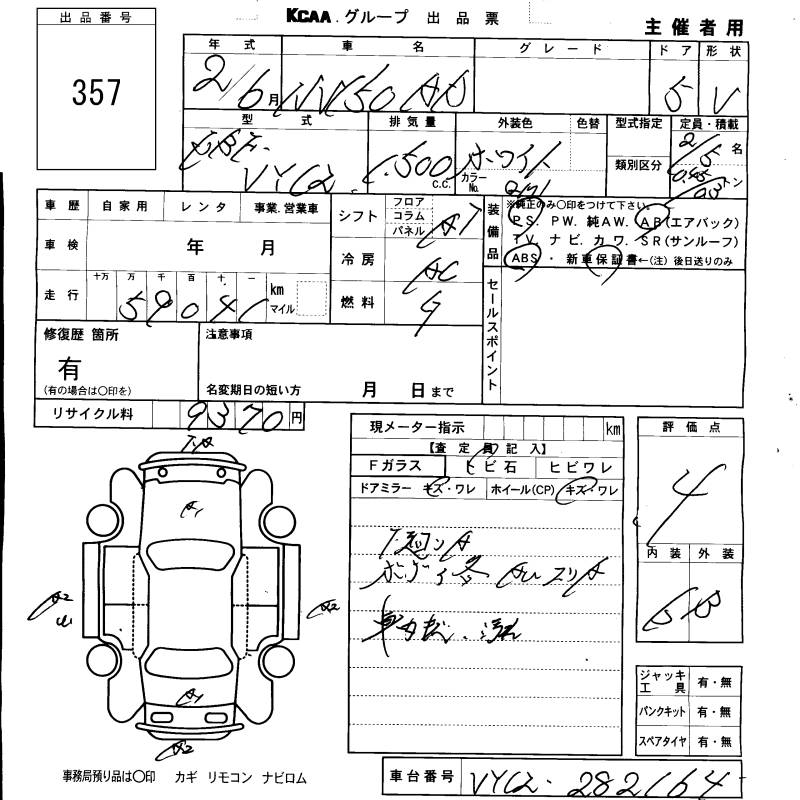 KCAA.グループ 出品票
主催者用
出品番号
357
年式 車名 グレード ドア 形状
2/6月 NV150 AD 5 V
型式 排気量 外装色 色替 型式指定 定員・積載
DBF- 1,500 C.C. ホワイト 2/5 名
VY12 カラーNo. 類別区分 トン
車歴 自家用 レンタ 事業.営業車
シフト フロア コラム パネル AT
装備品
※純正のみ○印をつけて下さい。
PS. PW. 純AW. AB(エアバック)
TV. ナビ. カワ. SR(サンルーフ)
ABS・新車保証書←(注)後日送りのみ
車検 年 月
冷房 AC
走行 十万 万 千 百 十 一
59041 km マイル
燃料 G
セールスポイント
修復歴 箇所
有
(有の場合は○印を)
注意事項
名変期日の短い方 月 日まで
リサイクル料 9370円
現メーター指示 km
【査定員記入】
Fガラス トビ石 ヒビワレ
ドアミラー キズ・ワレ ホイール(CP) キズ・ワレ
評価点
4
内装 外装
A1
A2
A2
A1
A2
ジャッキ工具 有・無
パンクキット 有・無
スペアタイヤ 有・無
事務局預り品は○印 カギ リモコン ナビロム
車台番号 VY12-282164